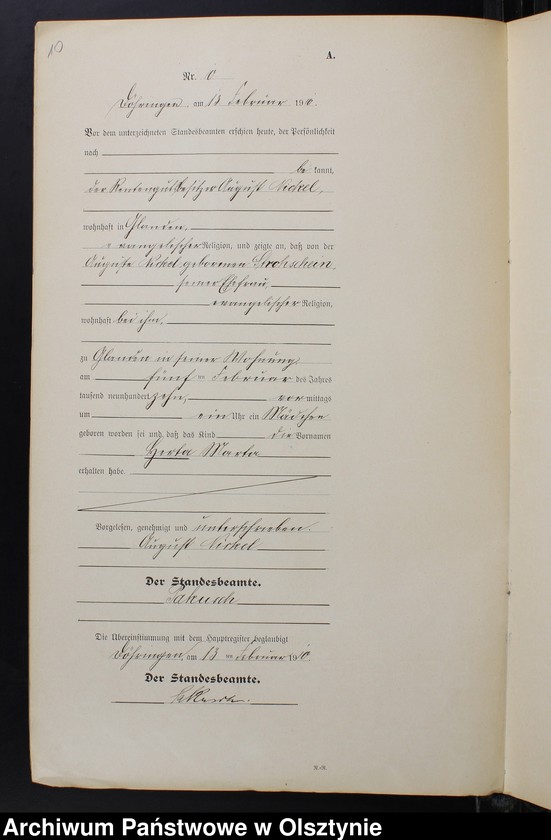 10
A.
Nr. 10
Döhringen, am 13 Februar 1910.
Vor dem unterzeichneten Standesbeamten erschien heute, der Persönlichkeit
nach
be kannt,
der Rentengutsbesitzer August Nickel,
wohnhaft in Glanden,
evangelischer Religion, und zeigte an, daß von der
Auguste Nickel geborenen
seiner Ehefrau,
evangelischer Religion,
wohnhaft bei ihm,
zu Glanden in seiner Wohnung
am fünf ten Februar des Jahres
tausend neunhundert zehn, vor mittags
um ein Uhr ein Mädchen
geboren worden sei und daß das Kind die Vornamen
Herta Marta
erhalten habe.
Vorgelesen, genehmigt und unterschrieben.
August Nickel
Der Standesbeamte.
Die Übereinstimmung mit dem Hauptregister beglaubigt
Döhringen, am 13 ten Februar 1910.
Der Standesbeamte.
Archiwum Państwowe w Olsztynie